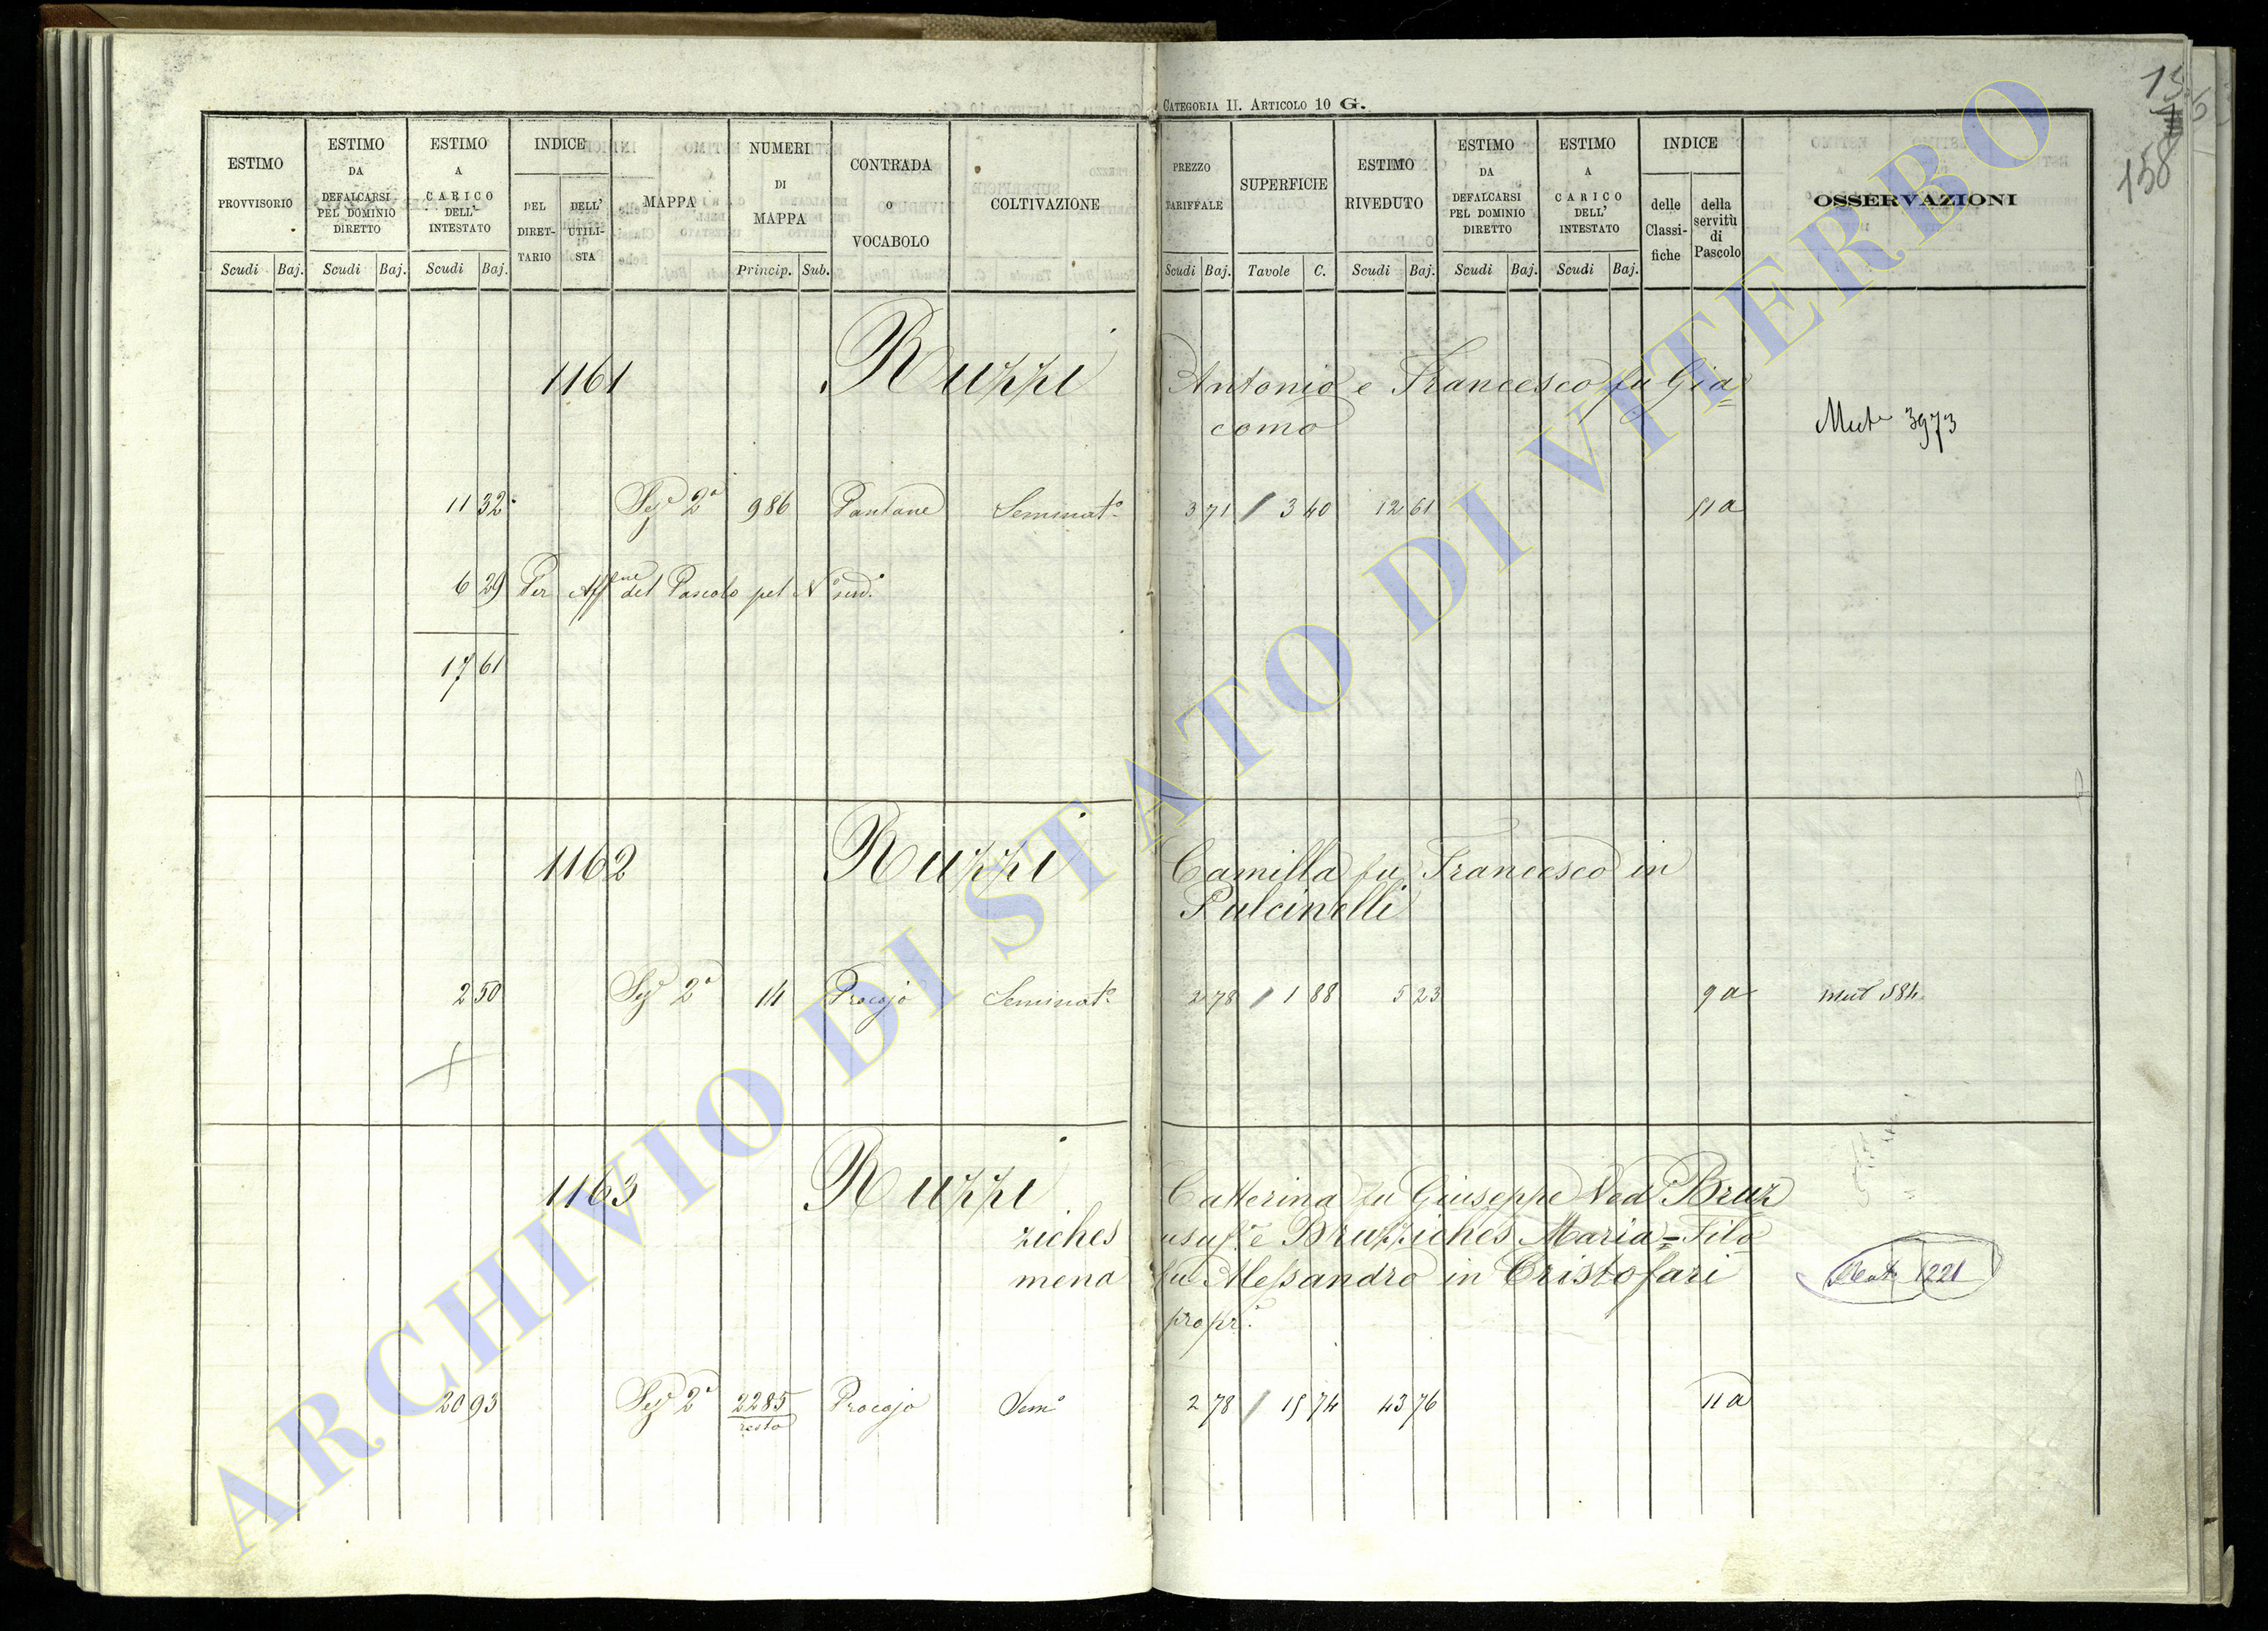 CATEGORIA II. ARTICOLO 10 G.
158
ESTIMO PROVVISORIO Scudi Baj.
ESTIMO DA DEFALCARSI PEL DOMINIO DIRETTO Scudi Baj.
ESTIMO A CARICO DELL' INTESTATO Scudi Baj.
INDICE DEL DIRET- TARIO DELL' UTILI- STA
MAPPA
NUMERI DI MAPPA Princip. Sub.
CONTRADA O VOCABOLO
COLTIVAZIONE
PREZZO TARIFFALE Scudi Baj.
SUPERFICIE Tavole C.
ESTIMO RIVEDUTO Scudi Baj.
ESTIMO DA DEFALCARSI PEL DOMINIO DIRETTO Scudi Baj.
ESTIMO A CARICO DELL' INTESTATO Scudi Baj.
INDICE delle Classi- fiche della servitù di Pascolo
OSSERVAZIONI
1161 Ruzzi Antonio e Francesco fu Gia=
como
Mut 3973
11 32 Sez 2a 986 Pantane Seminato 3 71 / 3 40 12 61 11 a
6 29 Per Affne del Pascolo pel No sud.o
17 61
1162 Ruzzi Camilla fu Francesco in
Pulcinelli
2 50 Sez 2a 14 Procojo Seminato 2 78 / 1 88 5 23 9 a mut 584
1163 Ruzzi Catterina fu Giuseppe Ved Bruz
ziches usuf.e Bruzziches Maria=Filo
mena fu Alessandro in Cristofari
propr.
Mut 1221
20 93 Sez 2a 2285 resto Procojo Semo 2 78 / 15 74 43 76 11 a
ARCHIVIO DI STATO DI VITERBO